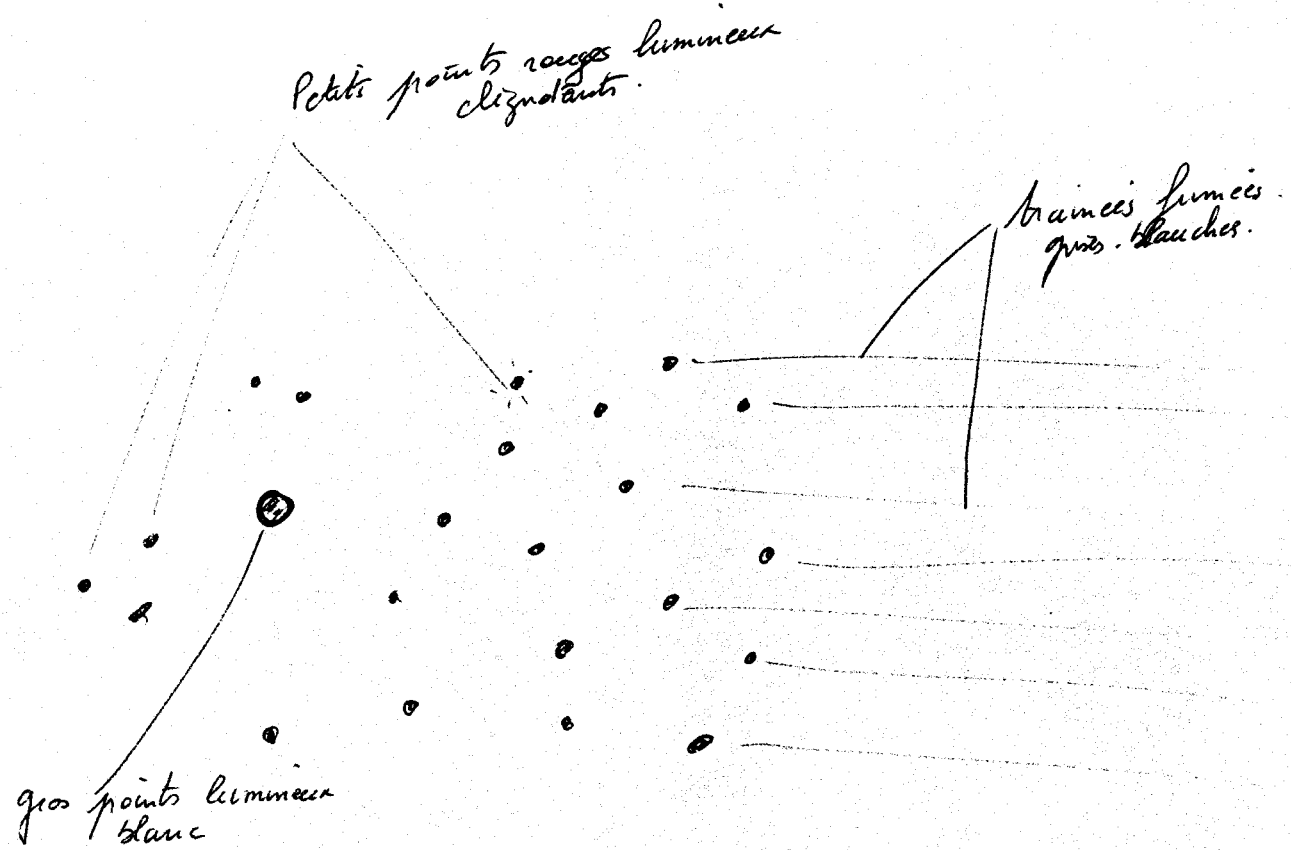 Petits points rouges lumineux
clignotants.
trainées fumées.
grises. blanches.
gros points lumineux
blanc